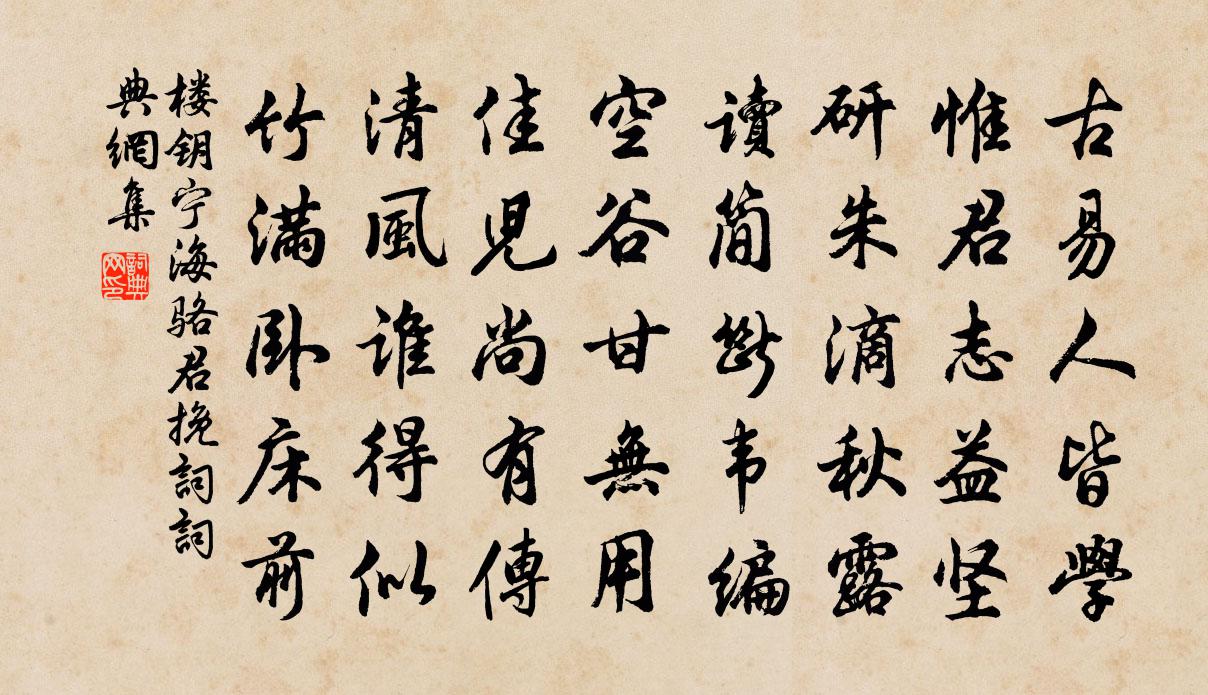 古易人皆學
惟君志益坚
研朱滴秋露
讀简斷韦编
空谷甘無用
佳児尚有傳
清風谁得似
竹满卧床前
楼钥宁海骆君挽詞詞
典網集
詞典网印